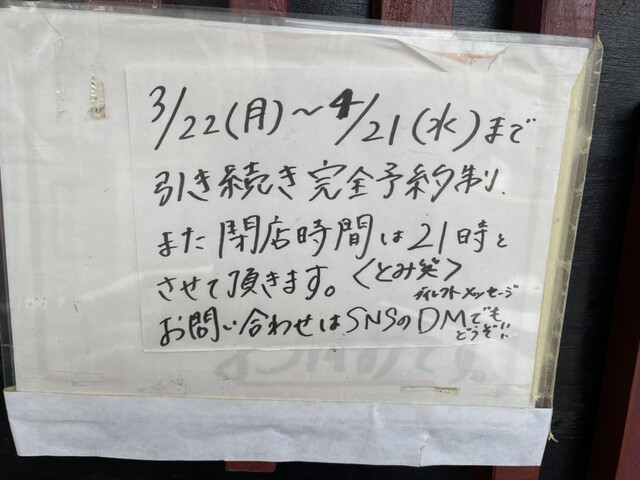 3/22(月)～4/21(水)まで
引き続き完全予約制、
また閉店時間は21時と
させて頂きます。〈とみ笑〉
ダイレクトメッセージ
お問い合わせはSNSのDMでも
どうぞ!!